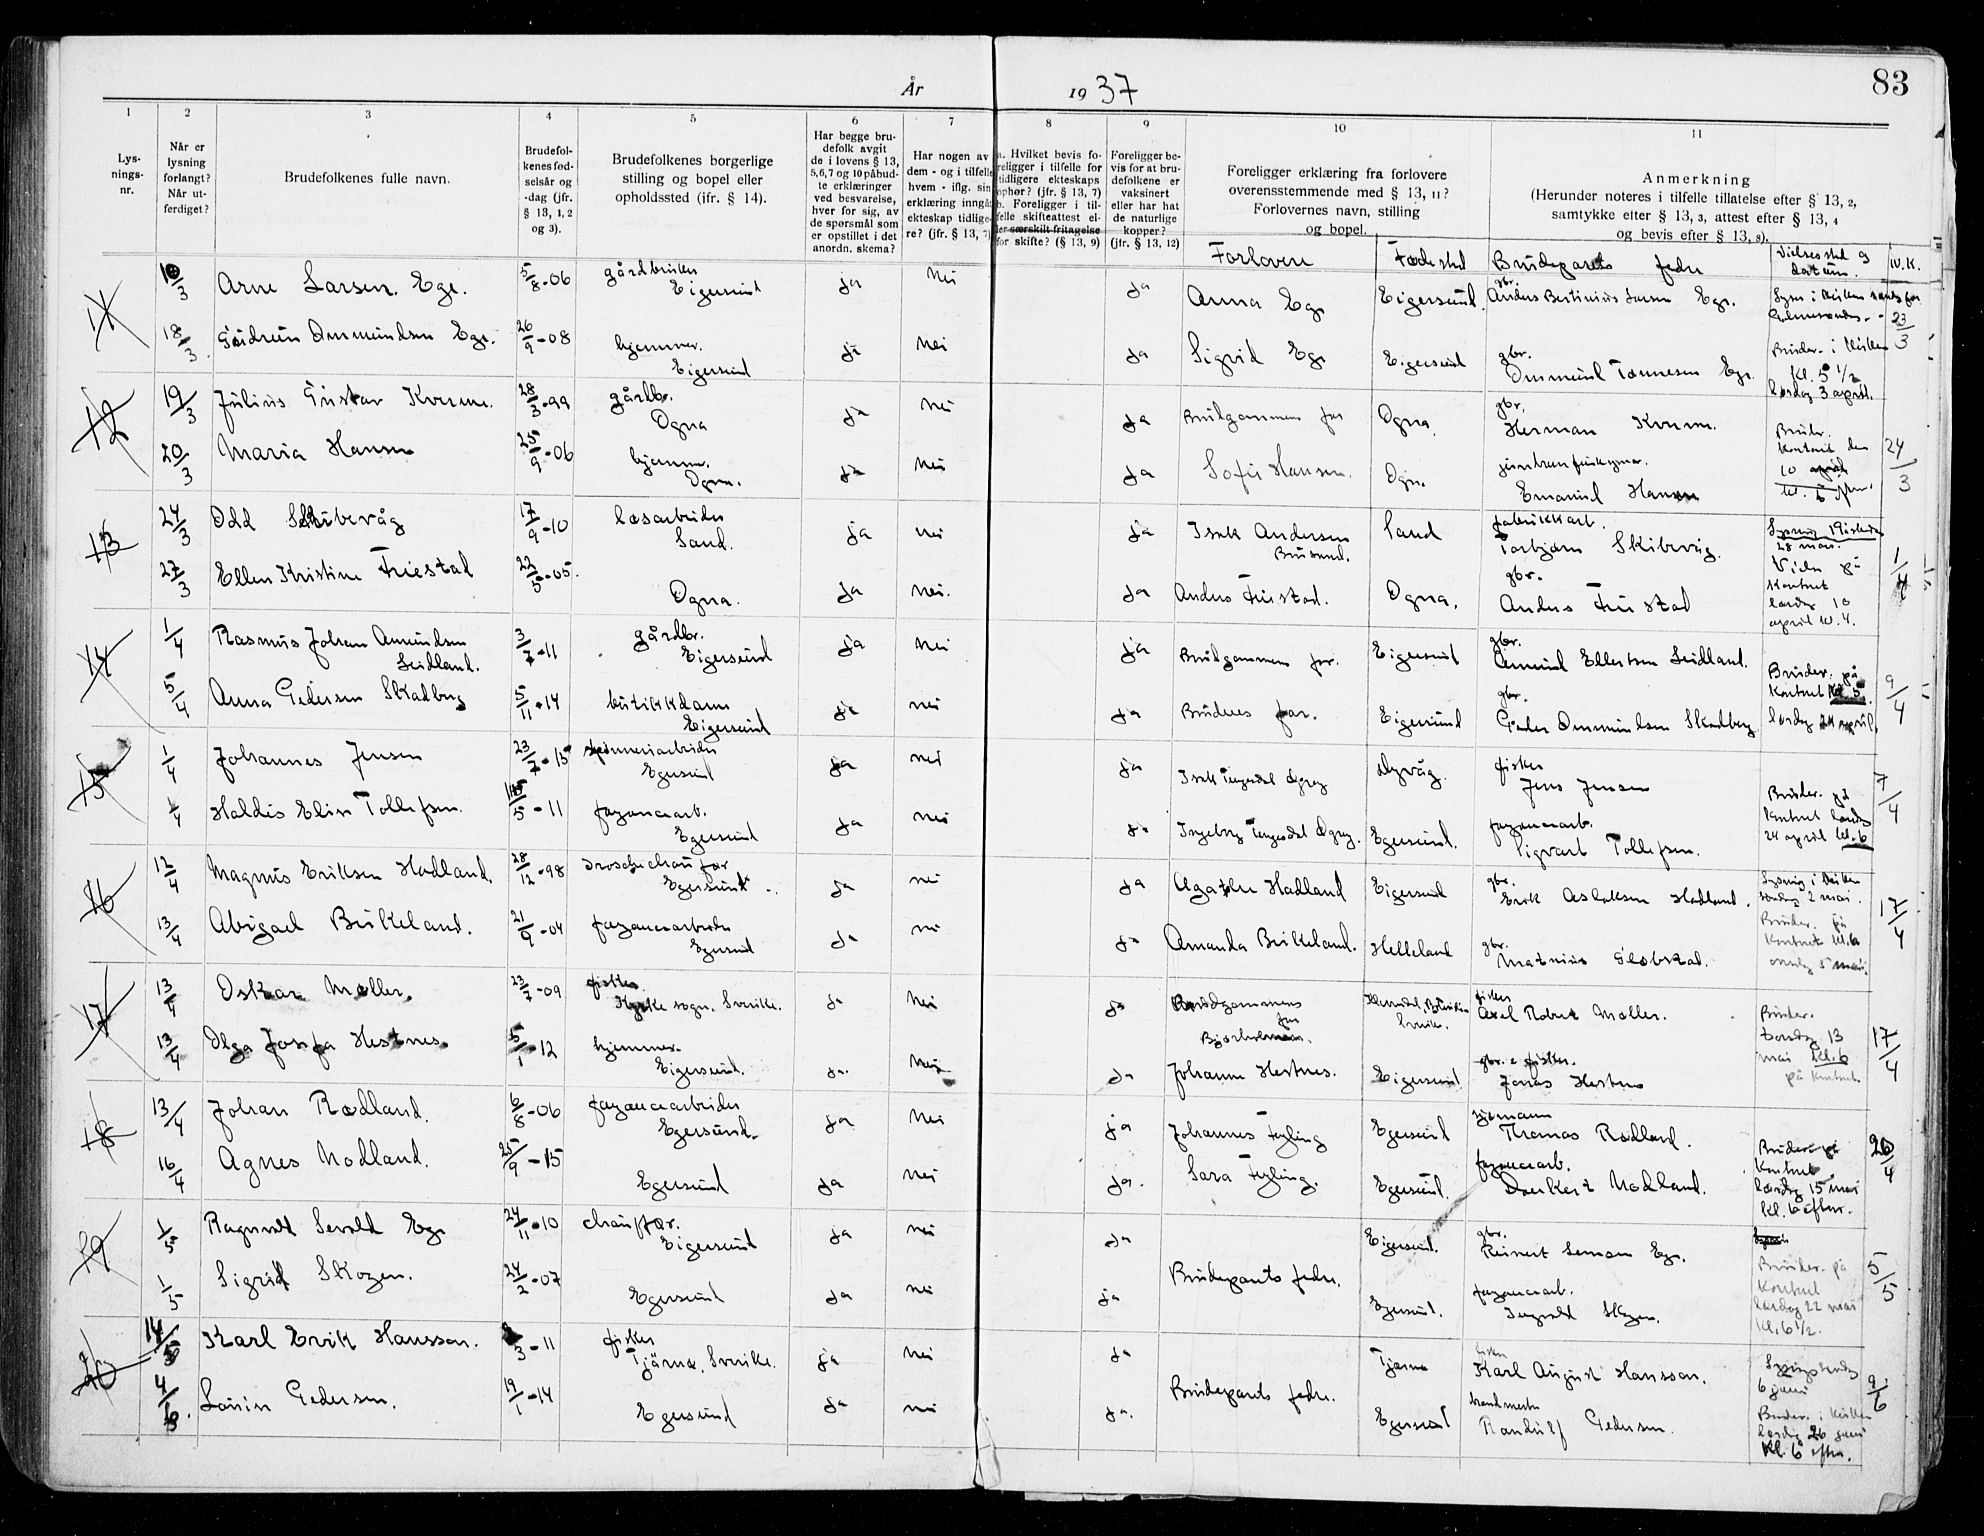 83
År 1937
1 2 3 4 5 6 7 8 9 10 11
Lys-
nings-
nr.
Når er
lysning
forlangt?
Når ut-
ferdiget?
Brudefolkenes fulle navn.
Brudefol-
kenes fød-
selsår og
-dag (jfr.
§ 13, 1, 2
og 3).
Brudefolkenes borgerlige
stilling og bopel eller
opholdssted (jfr. § 14).
Har begge bru-
defolk avgit
de i lovens § 13,
5,6,7 og 10 påbud-
te erklæringer
ved besvarelse,
hver for sig, av
de spørsmål som
er opstillet i det
anordn. skema?
Har nogen av
dem - og i tilfelle
hvem - iflg. sin
erklæring inngå
ekteskap tidlige-
re? (jfr. § 13, 7)
a. Hvilket bevis fo-
religger i tilfelle for
tidligere ekteskaps
ophør? (jfr. § 13, 7)
b. Foreligger i til-
felle skifteattest el-
ler særskilt fritagelse
for skifte? (§ 13, 9)
Foreligger be-
vis for at bru-
defolkene er
vaksinert
eller har hat
de naturlige
kopper?
(jfr. § 13, 12)
Foreligger erklæring fra forlovere
overensstemmende med § 13, 11?
Forlovernes navn, stilling
og bopel.
Anmerkning
(Herunder noteres i tilfelle tillatelse efter § 13, 2,
samtykke efter § 13, 3, attest efter § 13, 4
og bevis efter § 13, 8).
Forlovere Fødested Brudeparets fedre Vielsessted og
datum. W.K.
11 10/3 Arne Larsen Ege. 5/8-06 gårdbruker
Eigersund ja Nei ja Anna Ege Eigersund. gbr.
Anders Bertinius Larsen Ege.
18/3 Gudrun Ommundsen Ege. 26/9-08 hjemmev.
Eigersund ja Nei ja Sigrid Ege Eigersund gbr.
Ommund Tønnesen Ege.
Bruder. i kirken
kl. 5 1/2
lørdag 3 april.
23/3
12 19/3 Julius Gustav Kverme. 28/3-99 gårdbr.
Ogna ja Nei ja Brudgommens far Ogna. gbr.
Herman Kverme.
20/3 Maria Hansen 25/9-06 hjemmev.
Ogna. ja Nei ja Sofie Hansen. Ogna.
Emanuel Hansen
Bruder.
kontoret den
10 april
kl. 6
24/3
13 24/3 Odd Skibevåg 17/9-10 løsarbeider
Sand. ja nei ja Isak Andersen
Brusand. Sand fabrikkarb.
Torbjørn Skibevåg.
27/3 Ellen Kristine Friestad 22/5-05.
Ogna. ja Nei. ja Anders Friestad. Ogna. gbr.
Anders Friestad
28 mars.
Vies på
kontoret
lørdag 10
april kl. 4.
1/4
14 1/4 Rasmus Johan Amundsen
Leidland. 3/7-11 gårdbr.
Eigersund ja Nei ja Brudgommens far. Eigersund gbr.
Amund Ellertsen Leidland.
5/4 Anna Pedersen Skadberg 5/11-14 butikkdame
Eigersund ja nei ja Brudens far. Eigersund gbr.
Peder Ommundsen Skadberg
Bruder. på
kontoret kl 5
lørdag 24 april.
9/4
15 1/4 Johannes Jensen 23/7-15 spinneriarbeider
Egersund ja nei ja Isak Tengesdal Dyvåg. fisker
Jens Jensen
1/4 Haldis Elin Tollefsen. 5-11 fayancearb.
Egersund ja Nei ja Ingeborg Tengesdal Egersund. fayancearb.
Sigvart Tollefsen.
Bruder. på
kontoret lørdag
24 april kl. 6
7/4
16 12/4 Magnus Eriksen Hadland. 28/12-98 droschechauffør
Egersund ja nei ja Agathe Hadland Eigersund gbr.
Erik Aslaksen Hadland.
13/4 Abigael Birkeland. 21/9-04 fayancearbeider
Egersund ja nei ja Amanda Birkeland. Helleland gbr.
Lysning i kirken
søndag 2 mai.
Bruder. på
kontoret kl. 6
onsdag 5 mai.
17/4
17 13/4 Oskar Møller. 23/7-09 fisker.
sogn, Sverike. ja Nei ja Brudgommens
far
Bjørholmen. fisker
Axel Robert Møller.
13/4 Olga Josefa Hestnes. 5/1-12 hjemmev.
Eigersund. ja. Nei ja Johanne Hestnes. Eigersund gbr. & fisker.
Jonas Hestnes
Bruder.
torsdag 13
mai kl. 6
på kontoret.
17/4
18 13/4 Johan Rødland. 6/8-06 fayancearbeider
Egersund. ja Nei ja Johannes Fugling Egersund sjømann
Thomas Rødland.
16/4 Agnes Modland. 25/9-15
Egersund ja Nei ja. Sara Fugling. Egersund. fayancearb.
Modland.
Bruder på
kontoret
lørdag 15 mai
kl. 6 efterm.
20/4
19 1/5 Ragnvald Sevald Ege 24/11-10 chauffør.
Eigersund ja nei ja Eigersund. gbr.
Reinert Ege.
1/5 Sigrid Skogen. 24/2-07
Egersund ja nei ja Brudeparets fedre. Egersund. fayancearb.
Ingvald Skogen.
Bruder. på
kontoret
lørdag 22 mai
kl. 6 1/2.
5/5
20 14/5 Karl Erik Hansson. 3-11 fisker
Tjärnø, Sverike. ja Nei ja Tjärnø fisker
Karl August Hansson.
4/6 Lovise Pedersen. 19/1-14
Egersund ja nei ja. Brudeparets fedre. Egersund brandmester
Randulf Pedersen.
6 juni
Bruder. i kirken
lørdag 26 juni
kl. 6 efterm.
9/6